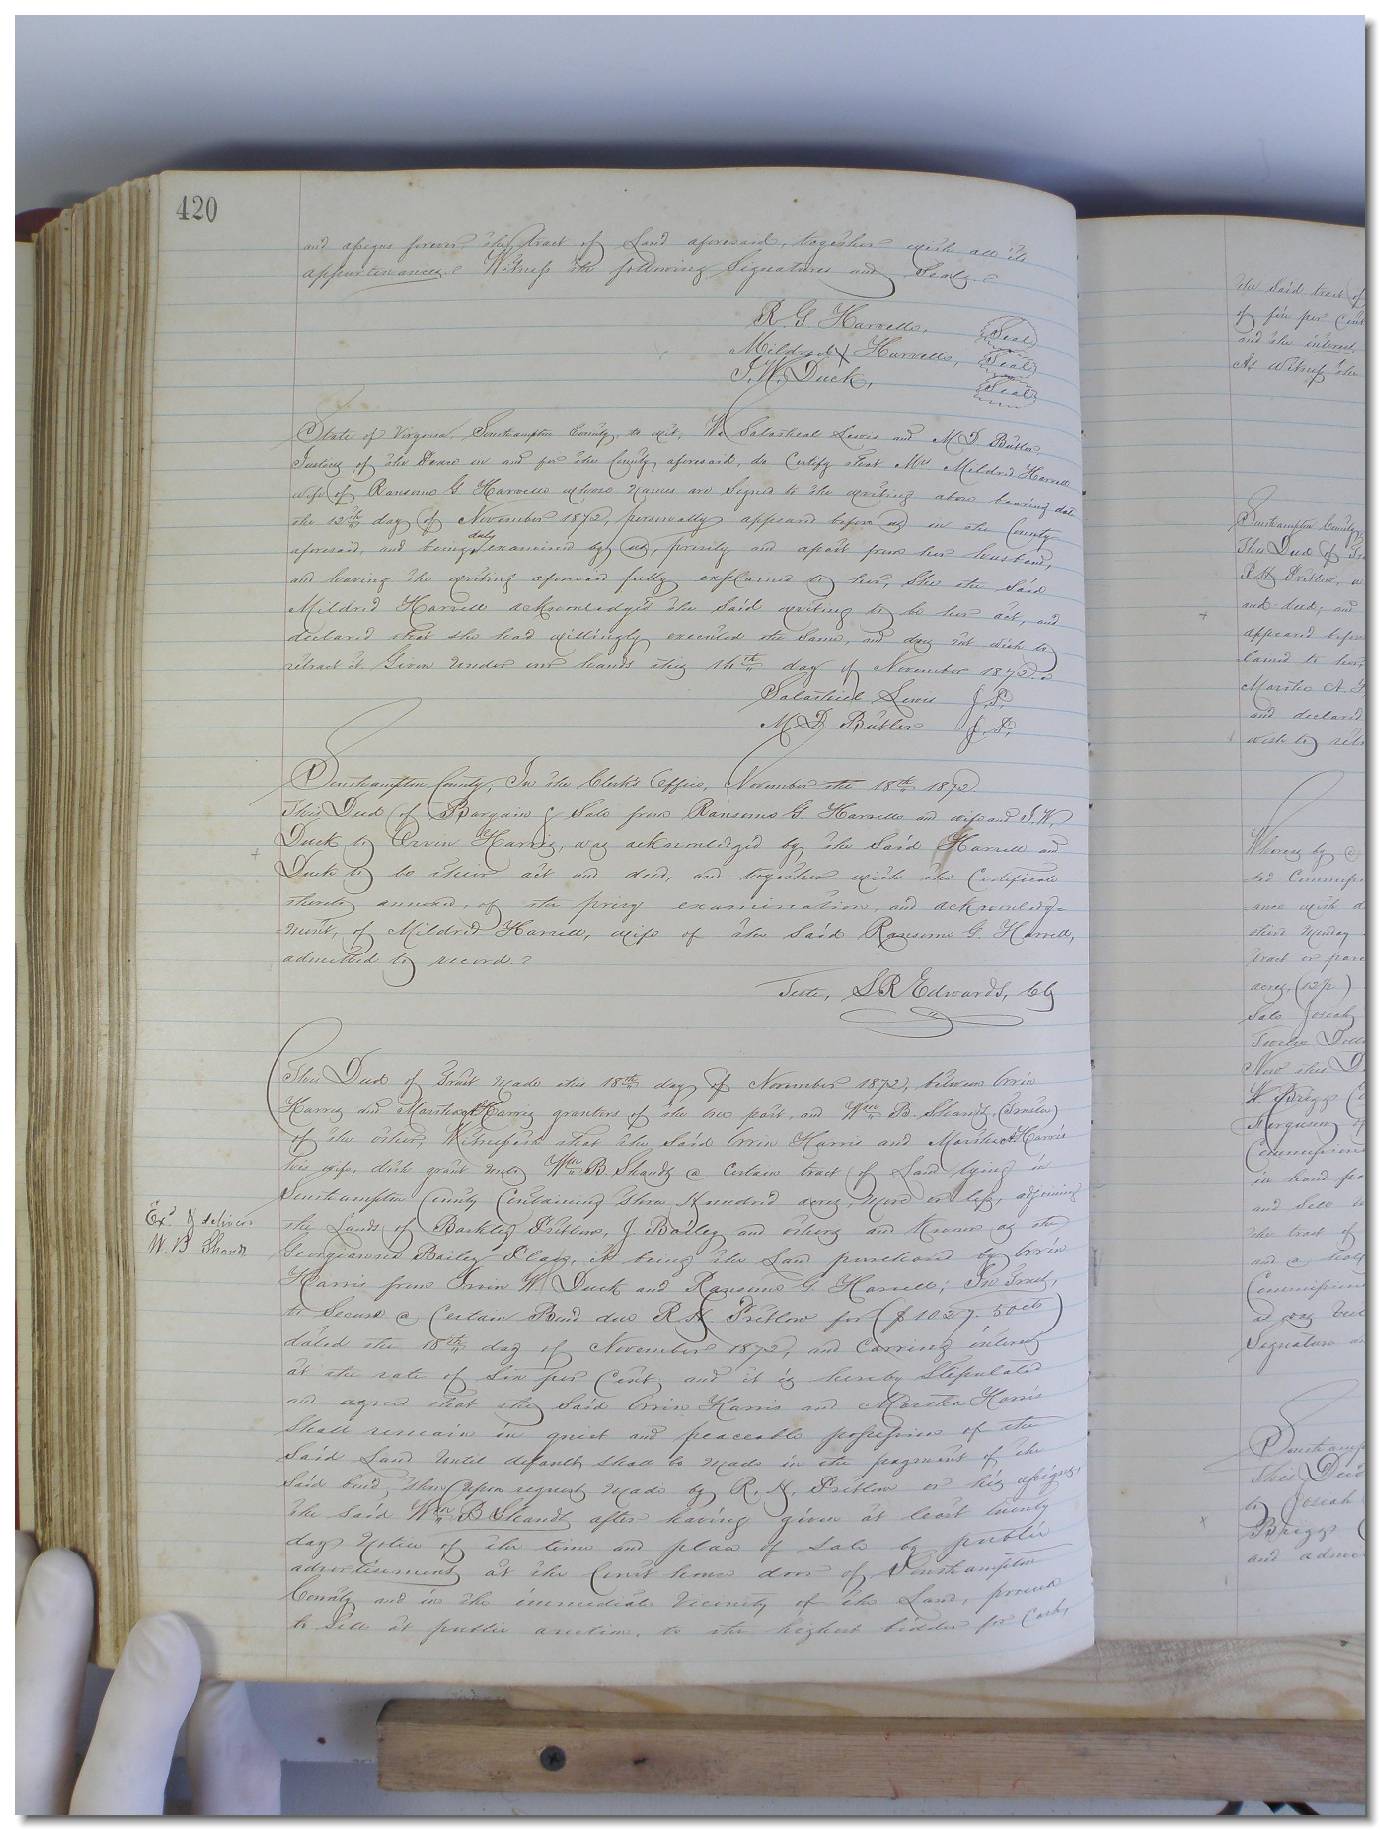 420
and assigns forever the tract of Land aforesaid, together with all its
appurtenances. Witness the following Signatures and Seals.
R G Harrells, Seal
Mildred X Harrells, Seal
I. W. Duck, Seal
State of Virginia, Southampton County, to wit, We Salatheal Lewis and M D Butler
Justices of the Peace in and for the County aforesaid, do Certify that Mrs Mildred Harrell
wife of Ransome G Harrell whose names are Signed to the writing above bearing date
the 12th day of November 1872, personally appeared before us in the County
aforesaid, and being duly examined by us, privily and apart from her husband,
and having the writing aforesaid fully explained to her, She the Said
Mildred Harrell acknowledged the Said writing to be her act, and
declared that she had willingly executed the Same, and does not wish to
retract it. Given under our hands this 14th day of November 1872.
Salathiel Lewis J.P.
M. D Butler J.P.
Southampton County, In the Clerk's Office, November the 18th 1872
This Deed of Bargain & Sale from Ransome G. Harrell and wife and I. W.
Duck to Ervin Harris, was acknowledged by the Said Harrell and
Duck to be their act and deed, and together with the Certificate
thereto annexed, of the privy examination, and acknowledg-
-ment, of Mildred Harrell, wife of the Said Ransome G. Harrell,
admitted to record.
Teste, L R Edwards, Clk
This Deed of Trust made this 18th day of November 1872, between Ervin
Harris and Martha A Harris grantors of the one part, and Wm B. Shands, (Trustee)
of the other, Witnesseth that the Said Ervin Harris and Martha A Harris
his wife, doth grant unto Wm B Shands a Certain tract of Land lying in
Southampton County Containing three Hundred acres, more or less, adjoining
the Lands of Barkley Pretlow, J. Bailey and others and Known as the
Georgianna Bailey Place, it being the Land purchased by Ervin
Harris from Irvin W. Duck and Ransome G. Harrell; In Trust,
to Secure a Certain Bond due R H Pretlow for ($1027.50cts)
dated the 18th day of November 1872, and Carrying interest
at the rate of Six per Cent, and it is hereby Stipulated
and agreed that the Said Ervin Harris and Martha Harris
Shall remain in quiet and peaceable possession of the
Said Land until default shall be made in the payment of the
Said bond, then upon request made by R. H. Pretlow or his assigns,
the said Wm B Shands after having given at least twenty
days Notice of the time and place of Sale by public
advertisement at the Court house door of Southampton
County and in the immediate Vicinity of the Land, proceed
to Sell at public auction, to the highest bidder for Cash,
Exd & deliverd
W. B Shands
the said tract of
of six per Cent
and the interest
As Witness the
Southampton County,
This Deed of Tr
R H Pretlow, w
and deed, and
appeared before
Martha A. H
and declared
wish to retr
Whereas by a
ted Commissi
-ance with a
third Monday
tract or parc
acres, (12½)
Sale Josiah
Twelve Doll
Now this D
Ferguson of
Commissione
in hand pa
and Sell
the tract of
Commissione
Signature an
Southamp
This Deed
to Josiah
Briggs
and admi